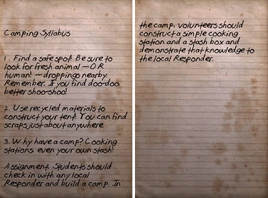 Camping Syllabus
1. Find a safe spot. Be sure to
look for fresh animal - OR
human! - droppings nearby.
Remember: If you find doo-doo
better shoo-shoo!
2. Use recycled materials to
construct your tent. You can find
scraps just about anywhere.
3. Why have a camp? Cooking
stations even your own stash!
Assignment: Students should
check in with any local
Responder and build a camp. In
the camp, volunteers should
construct a simple cooking
station and a stash box and
demonstrate that knowledge to
the local Responder.